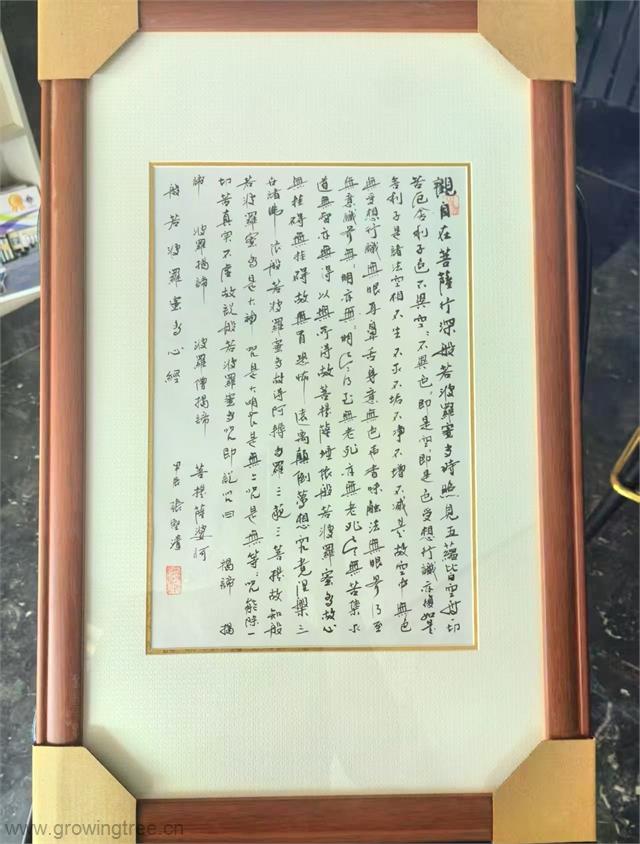 觀自在菩薩行深般若波羅蜜多時照見五蘊皆空度一切
苦厄舍利子色不異空空不異色色即是空空即是色受想行識亦復如是
舍利子是諸法空相不生不滅不垢不淨不增不減是故空中無色
無受想行識無眼耳鼻舌身意無色聲香味觸法無眼界乃至
無意識界無無明亦無無明盡乃至無老死亦無老死盡無苦集滅
道無智亦無得以無所得故菩提薩埵依般若波羅蜜多故心
無挂碍無挂碍故無有恐怖遠離顛倒夢想究竟涅槃三
世諸佛依般若波羅蜜多故得阿耨多羅三藐三菩提故知般
若波羅蜜多是大神咒是大明咒是無上咒是無等等咒能除一
切苦真实不虛故說般若波羅蜜多咒即說咒曰 揭諦 揭
諦 波羅揭諦 波羅僧揭諦 菩提薩婆訶
般若波羅蜜多心經 甲辰 張
www.growingtree.cn